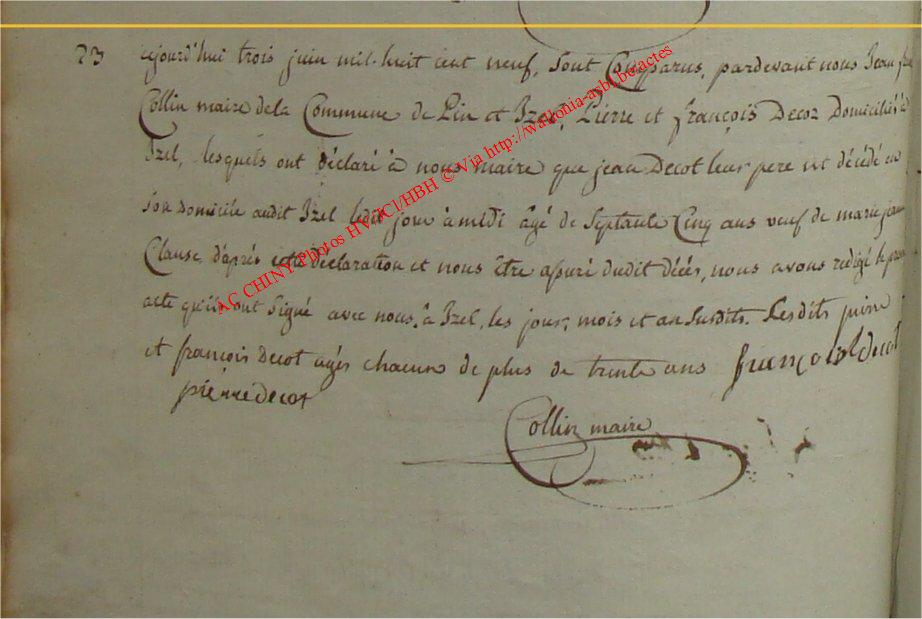 23 ajourd'hui trois juin mil-huit cent neuf, sont Comparus, pardevant nous Jean
Collin maire dela Commune de Pin et Izel, Pierre et françois Decot Domiciliés à
Izel, lesquels ont déclaré à nous maire que jean Decot leur pere est décédé en
son domicile audit Izel ledit jour à midi âgé de Septante Cinq ans veuf de marie jeanne
Clause, d'après cette déclaration et nous être assuré dudit décès, nous avons redigé le
acte qu'ils ont Signé avec nous, à Izel, les jour, mois et an Susdits. Lesdits pierre
et françois Decot agés chacun de plus de trente ans françois decot
pierre decot
Collin maire
AC CHINY Photos HV-JCl/HBH © Via http://wallonia-asbl.be/actes